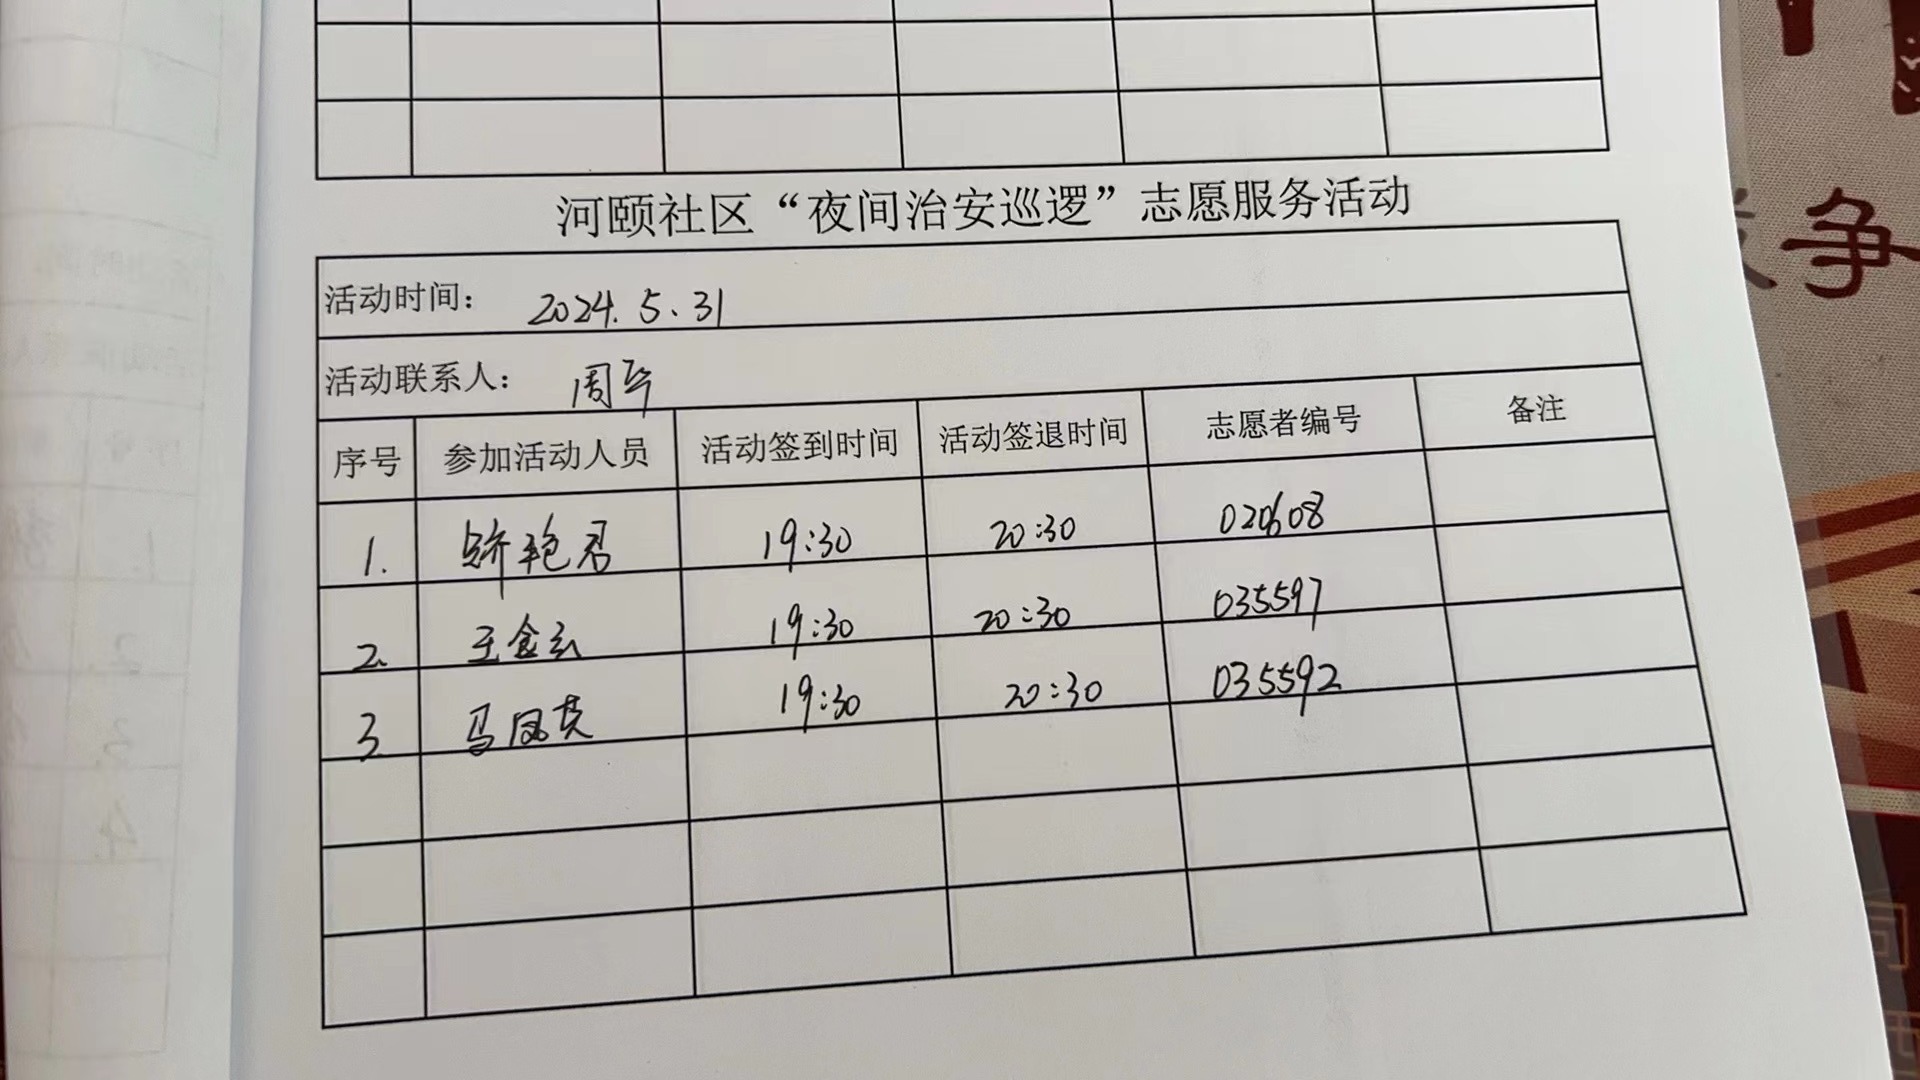 河颐社区“夜间治安巡逻”志愿服务活动
活动时间： 2024.5.31
活动联系人： 周华
序号 参加活动人员 活动签到时间 活动签退时间 志愿者编号 备注
1. 艳君 19:30 20:30 020608
2. 王金云 19:30 20:30 035597
3 马凤英 19:30 20:30 035592
争